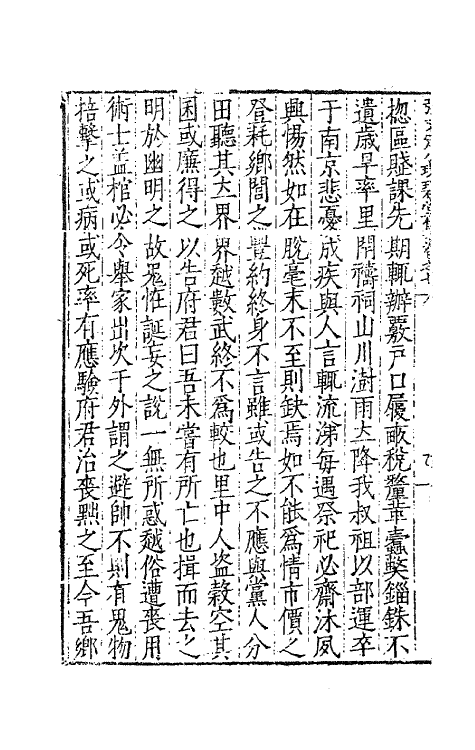 揔區賦課先期輒辦覈戶口履畝稅釐革蠹弊錙銖不
遺歲旱率里閈禱祠山川澍雨大降我叔祖以部運卒
于南京悲憂成疾與人言輒流涕每遇祭祀必齋沐夙
興惕然如在脫毫末不至則缺焉如不能爲情市價之
登耗鄉閭之豐約終身不言雖或告之不應與黨人分
田聽其大界界越數武終不爲較也里中人盜穀空其
囷或廉得之以告府君曰吾未嘗有所亡也揖而去之
明於幽明之故鬼怪誕妄之說一無所惑越俗遭喪用
術士盖棺必令舉家出次于外謂之避帥不則有鬼物
掊擊之或病或死率有應驗府君治喪黜之至今吾鄉